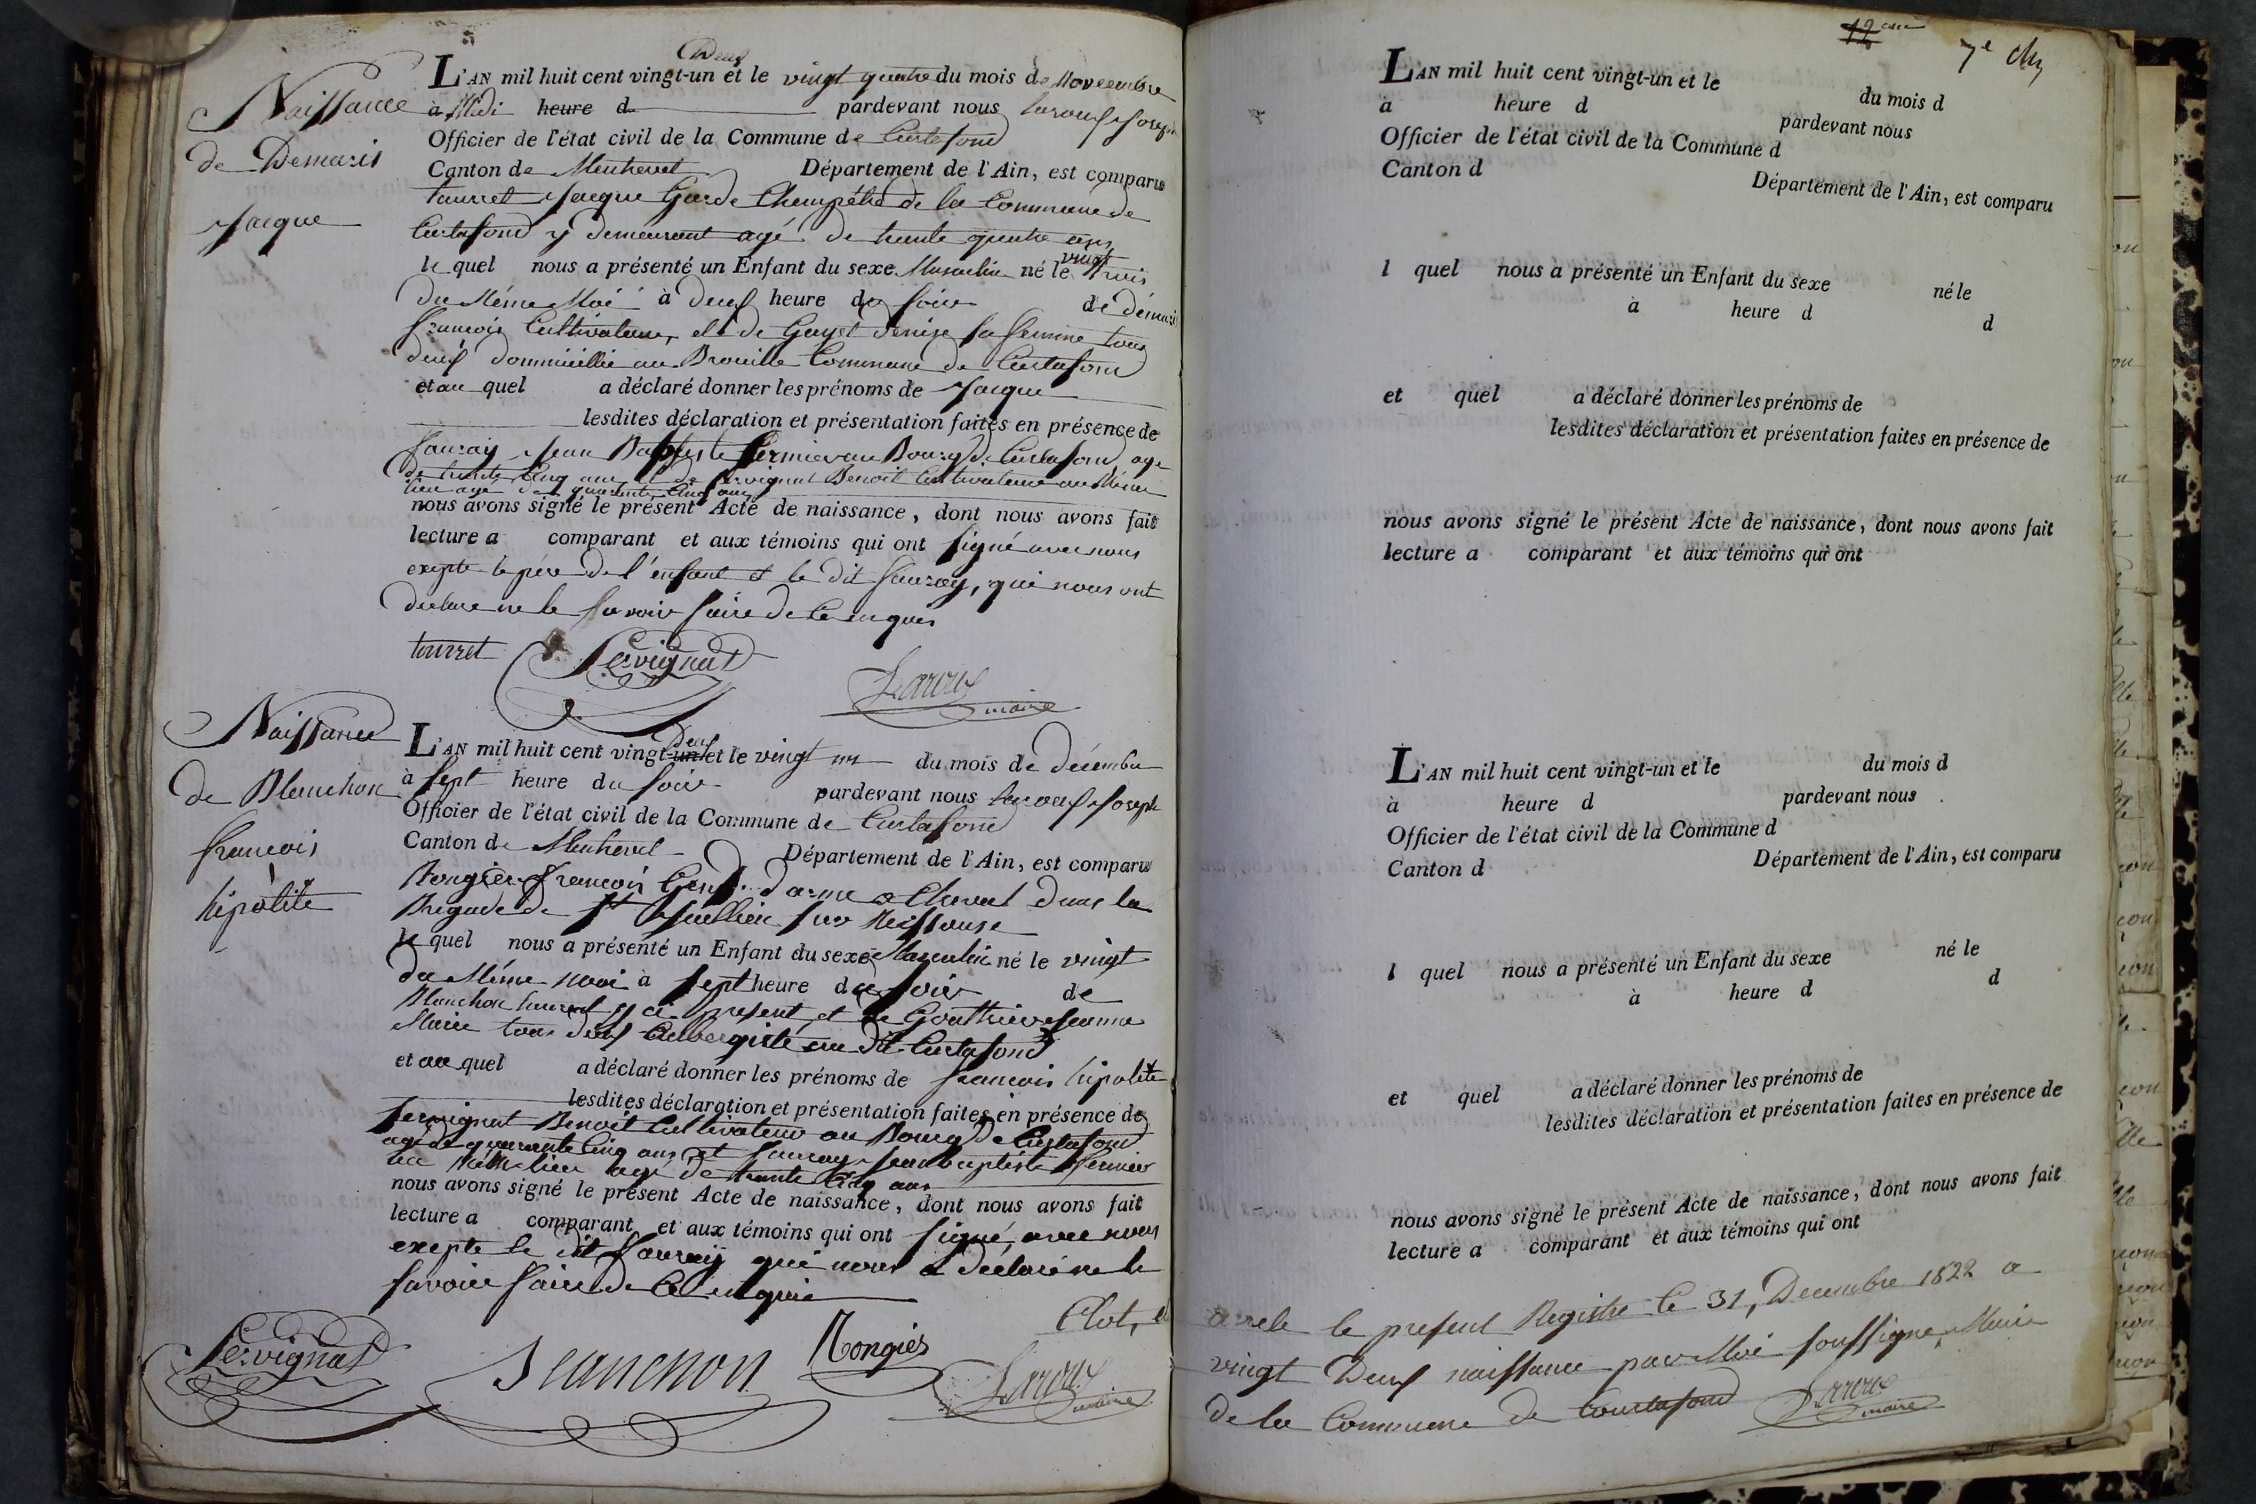 Naissance
de Demaris
Jacque
Deux
L'AN mil huit cent vingt-un et le vingt quatre du mois de Novembre
à Midi heure d pardevant nous Laroux Joseph
Officier de l'état civil de la Commune de Curtafond
Canton de Montrevel Département de l'Ain, est comparu
tourret Jacque Garde Champêtre de la Commune de
Curtafond y demeurant agé de trente quatre ans
le quel nous a présenté un Enfant du sexe Masculin né le vingt trois
du Même Moi à deux heure du soir de démaris
françois Cultivateur, et de Gayet denise sa femme tous
deux dommicillié au Brouille Commune de Curtafond
et au quel a déclaré donner les prénoms de Jacque
lesdites déclaration et présentation faites en présence de
fauray Jean Baptiste fermier au Bourg de Curtafond age
de trente Cinq ans et de Servignat Benoit Cultivateur au Même
lieu age de quarante Cinq ans
nous avons signé le présent Acte de naissance, dont nous avons fait
lecture a comparant et aux témoins qui ont signé avec nous
exepte le père de l'enfant et le dit fauray, qui nous ont
declaré ne le savoir faire de ce enquis
tourret Servignat Laroux
maire
Naissance
de Blanchon
francois
hipolite
L'AN mil huit cent vingt-un deux et le vingt un du mois de décembre
à sept heure du soir pardevant nous Laroux Joseph
Officier de l'état civil de la Commune de Curtafond
Canton de Montrevel Département de l'Ain, est comparu
Rongier francois Gend. d'arme a Cheval dans la
Brigade de St Jullien sur Reissouse
le quel nous a présenté un Enfant du sexe Masculin né le vingt
du Même moi à sept heure du soir de
Blanchon laurent y ci present et de Gouthier Jeanne
Marie tous deux aubergiste au dit Curtafond
et au quel a déclaré donner les prénoms de francois hipolite
lesdites déclaration et présentation faites en présence de
servignat Benoit Cultivateur au Bourg de Curtafond
agé de quarante Cinq ans et fauray Jean baptiste fermier
au Même lieu agé de trente Cinq ans
nous avons signé le présent Acte de naissance, dont nous avons fait
lecture a comparant et aux témoins qui ont signé, avec nous
exepte le dit fauray qui nous a declaré ne le
savoir faire de ce enquis
Clot, et
Servignat Blanchon Rongier Laroux
maire
12
7e
L'AN mil huit cent vingt-un et le du mois d
à heure d pardevant nous
Officier de l'état civil de la Commune d
Canton d Département de l'Ain, est comparu
l quel nous a présenté un Enfant du sexe né le
à heure d d
et quel a déclaré donner les prénoms de
lesdites déclaration et présentation faites en présence de
nous avons signé le présent Acte de naissance, dont nous avons fait
lecture a comparant et aux témoins qui ont
L'AN mil huit cent vingt-un et le du mois d
à heure d pardevant nous
Officier de l'état civil de la Commune d
Canton d Département de l'Ain, est comparu
l quel nous a présenté un Enfant du sexe né le
à heure d d
et quel a déclaré donner les prénoms de
lesdites déclaration et présentation faites en présence de
nous avons signé le présent Acte de naissance, dont nous avons fait
lecture a comparant et aux témoins qui ont
arrete le present Registre le 31, Decembre 1822 a
vingt Deux naissance par Moi soussigne, Maire
de la Commune de Courtafond Laroux
maire